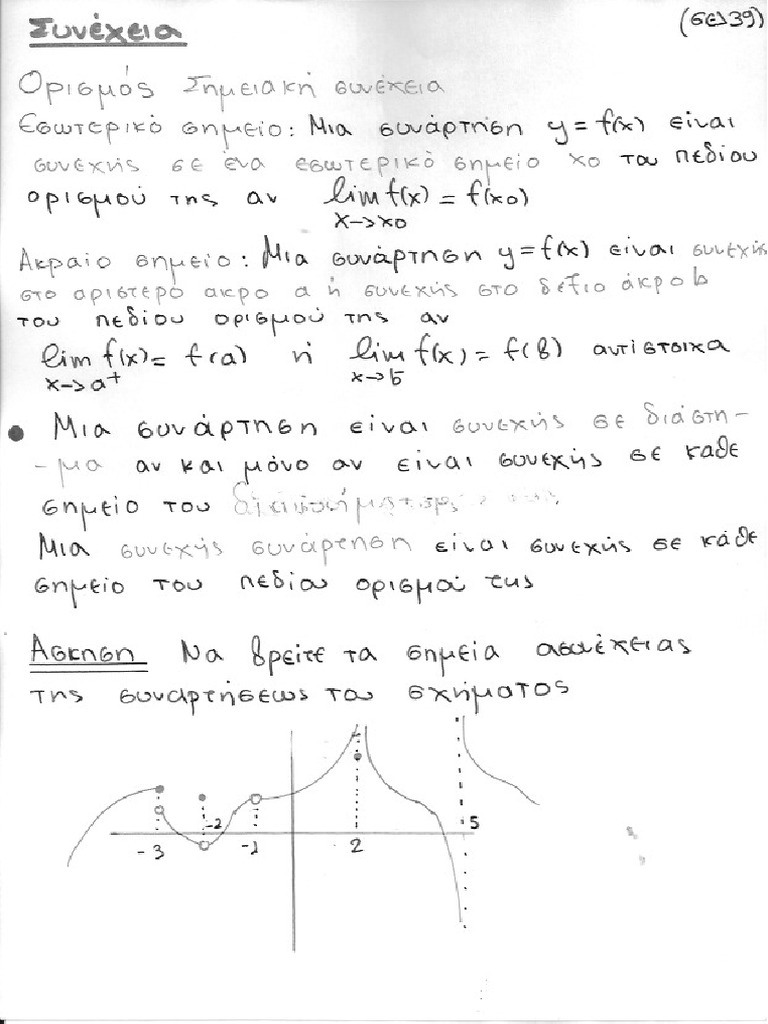 Συνέχεια
(σελ39)
Ορισμός Σημειακή συνέχεια
Εσωτερικό σημείο: Μια συνάρτηση y = f(x) είναι
συνεχής σε ένα εσωτερικό σημείο xo του πεδίου
ορισμού της αν lim f(x) = f(xo)
x->xo
Ακραίο σημείο: Μια συνάρτηση y = f(x) είναι συνεχής
στο αριστερό άκρο a ή συνεχής στο δεξιο άκρο b
του πεδίου ορισμού της αν
lim f(x) = f(a) ή lim f(x) = f(b) αντίστοιχα
x->a+ x->b-
• Μια συνάρτηση είναι συνεχής σε διάστη-
-μα αν και μόνο αν είναι συνεχής σε καθε
σημείο του
Μια συνεχής συνάρτηση είναι συνεχής σε κάθε
σημείο του πεδίου ορισμού της
Ασκηση Να βρείτε τα σημεία ασυνέχειας
της συναρτήσεως του σχήματος
-3 -2 -1 2 5